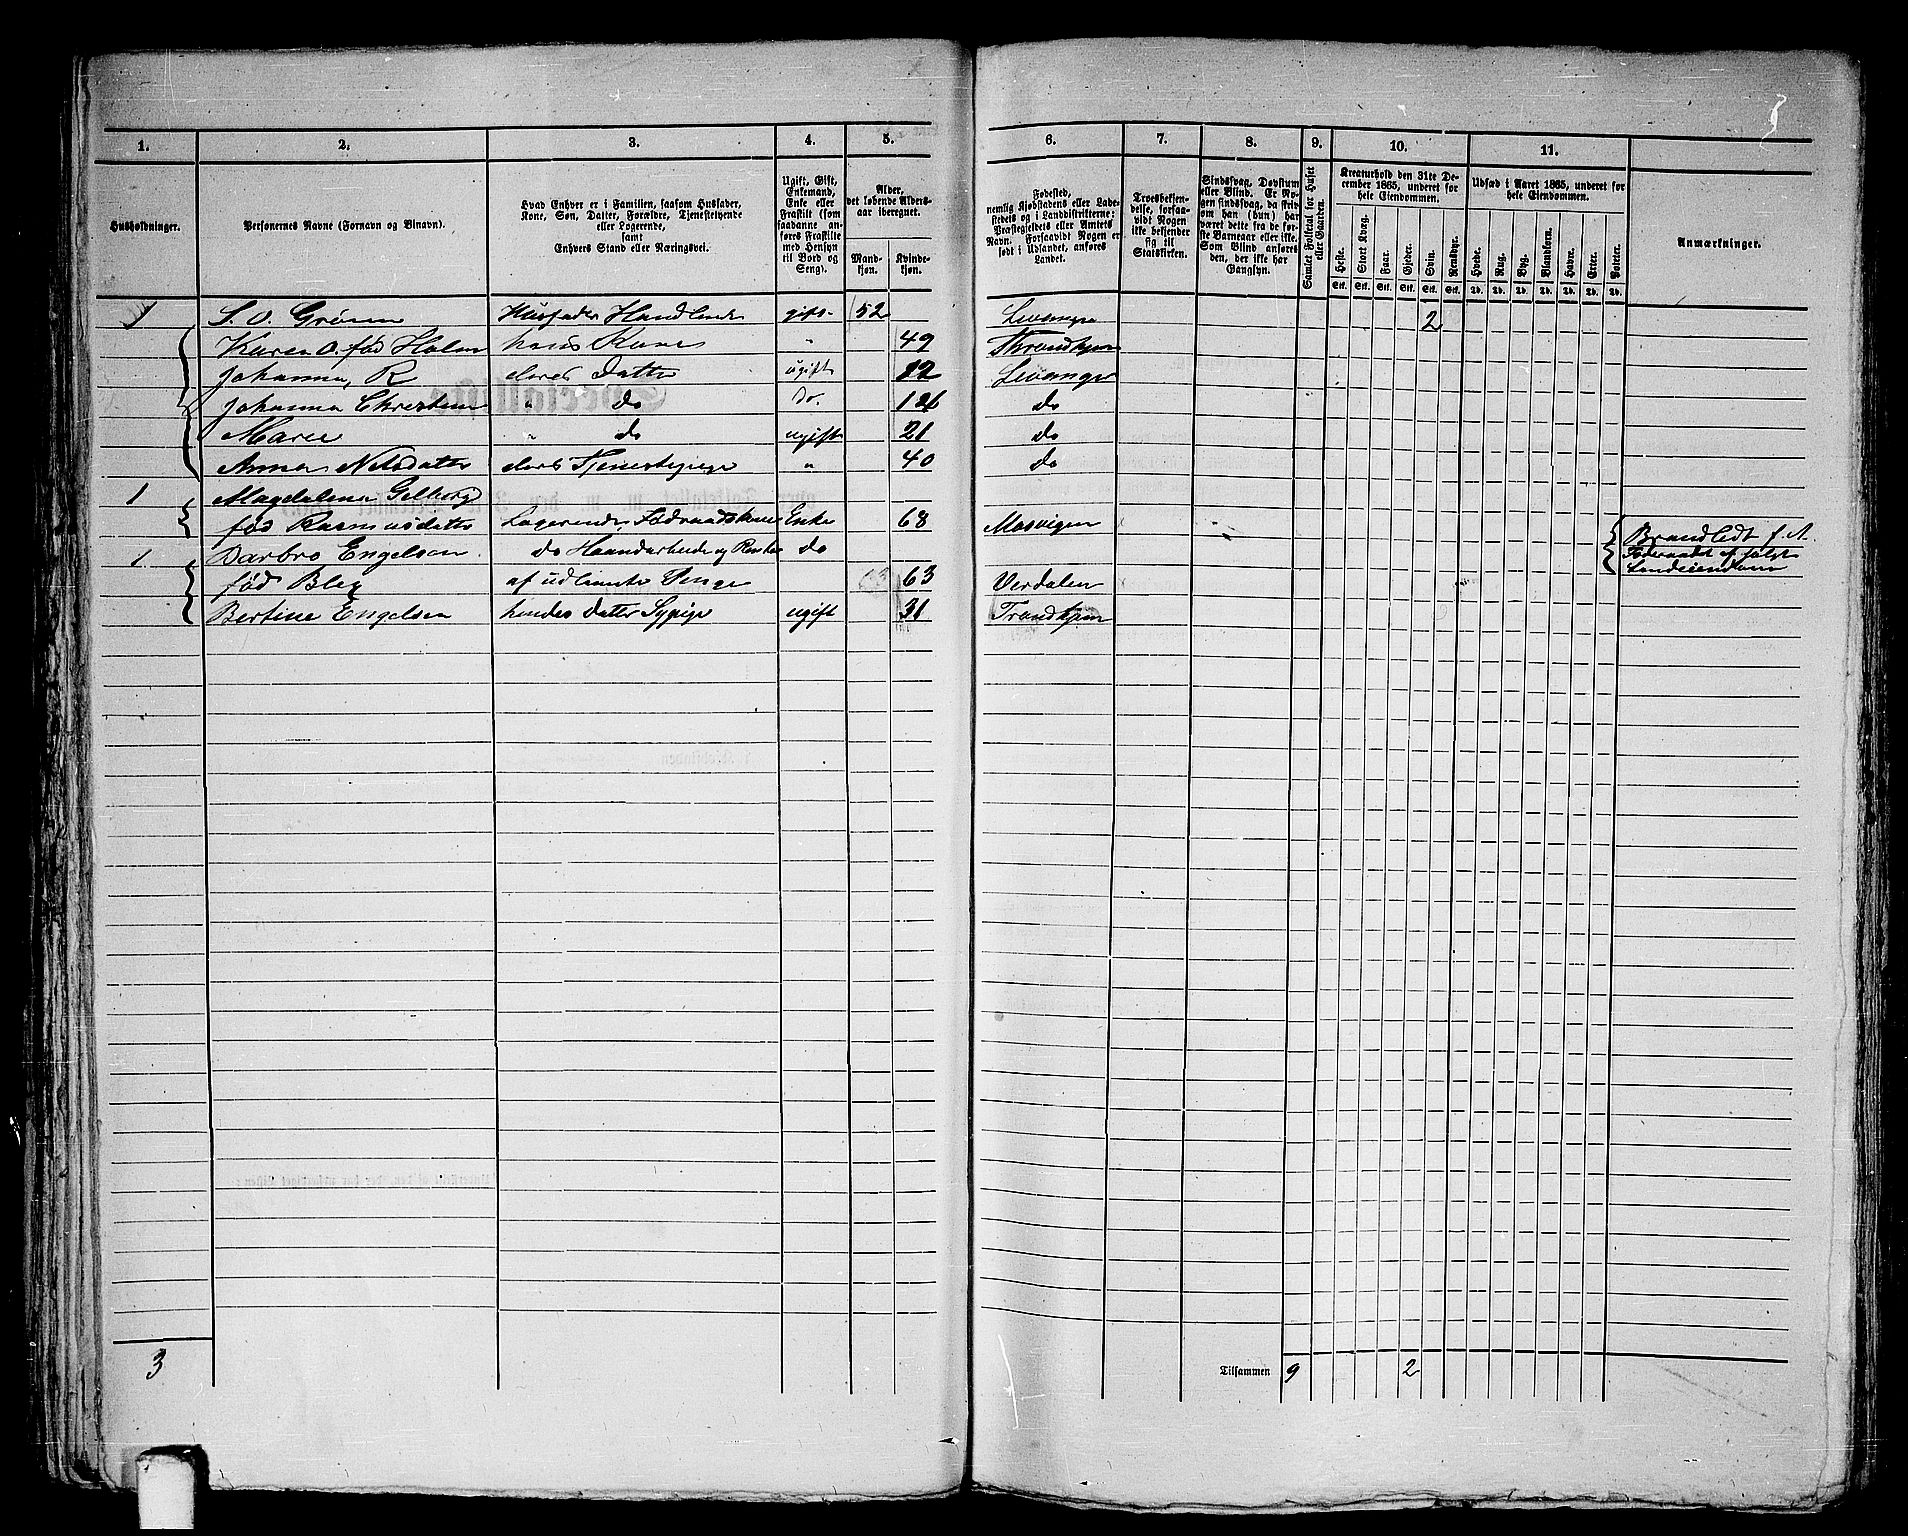 1. 2. 3. 4. 5. 6. 7. 8. 9. 10. 11.
Husholdninger.
Personernes Navne (Fornavn og Binavn).
Hvad Enhver er i Familien, saasom Husfader,
Kone, Søn, Datter, Forældre, Tjenestetyende
eller Logerende,
samt
Enhvers Stand eller Næringsvei.
Ugift, Gift,
Enkemand,
Enke eller
Fraskilt (som
saadanne an-
føres Fraskilte
med Hensyn
til Bord og
Seng).
Alder,
det løbende Alders-
aar iberegnet.
Mand-
kjøn.
Kvinde-
kjøn.
Fødested,
nemlig Kjøbstadens eller Lade-
stedets og i Landdistrikterne:
Præstegjeldets eller Amtets
Navn. Forsaavidt Nogen er
født i Udlandet, anføres
Landet.
Troesbekjen-
delse, forsaa-
vidt Nogen
ikke bekjender
sig til
Statskirken.
Sindssvag, Døvstum
eller Blind. Er No-
gen sindssvag, da skriv
om han (hun) har
været dette fra de før-
ste Barneaar eller ikke.
Som Blind anføres
den, der ikke har
Gangsyn.
Samlet Folketal for Huset
eller Gaarden.
Kreaturhold den 31te De-
cember 1865, underet for
hele Eiendommen.
Heste. Stort Kvæg. Faar. Gjeder. Svin. Rensdyr.
Stk. Stk. Stk. Stk. Stk. Stk.
Udsæd i Aaret 1865, underet for
hele Eiendommen.
Hvede. Rug. Byg. Blandkorn. Havre. Erter. Poteter.
Td. Td. Td. Td. Td. Td. Td.
Anmærkninger.
1 S. O. Grønn Husfader Handlende gift 52 Levanger 2
Karen O. fød Holm hans Kone " 49 Throndhjem
Johanna, R deres Datter ugift 22 Levanger
Johanna Christine " do do. 126 do
Marie " do ugift 21 do
Anna Nilsdatter deres Tjenestepige " 40 do
1 Magdalena Gelberg
fød Rasmusdatter Logerende, Føderaadskone Enke 68 Mosvigen
1 Barbro Engelsen do Haandarbeide og Renter do
fød Blex af udlaante Penge 63 Verdalen
Bertine Engelsen hendes Datter Sypige ugift 31 Trondhjem
Føderaadet af solgt
Landeiendom
3 Tilsammen 9 2